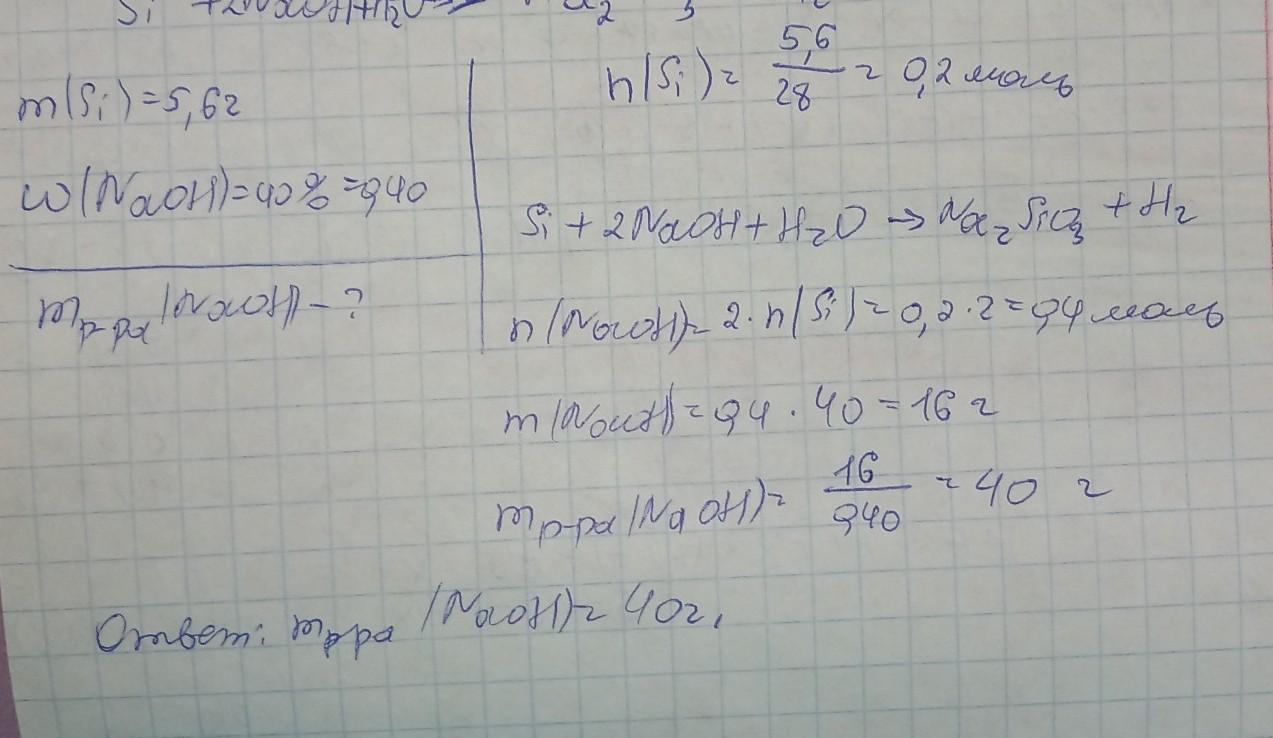 Si + 2NaOH + H₂O
m(Si) = 5,6г
n(Si) = 5,6/28 = 0,2 моль
ω(NaOH) = 40% = 0,40
Si + 2NaOH + H₂O → Na₂SiO₃ + H₂
m р-ра (NaOH) - ?
n(NaOH) = 2 · n(Si) = 0,2 · 2 = 0,4 моль
m(NaOH) = 0,4 · 40 = 16 г
m р-ра (NaOH) = 16/0,40 = 40 г
Ответ: m р-ра (NaOH) = 40г.